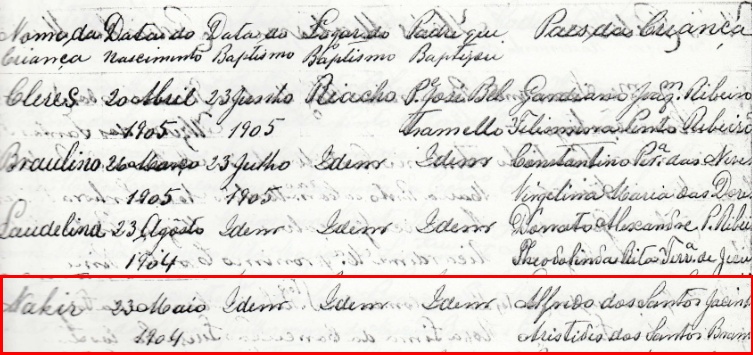 Nome da Data do Data do Logar do Padre qui Paes da Criança
Criança Nascimento Baptismo Baptismo Baptizou
Cleres 20 Abril 23 Junho Riacho Pe. José Bel Ganciano Joaqm. Ribeiro
1905 1905 Tramello Filismina Pinto Ribeiro
Braulino 26 Março 23 Julho Idem Idem Constantino Pira. das Neves
1905 1905 Virgelina Maria das Dores
Laudelina 23 Agosto Idem Idem Idem Donato Alexandre P. Ribei
1904 Theodolinda Rita Ferra. de Jesu
Nakir 23 Maio Idem Idem Idem Alfrido dos Santos Jacint
1904 Aristides dos Santos Bran